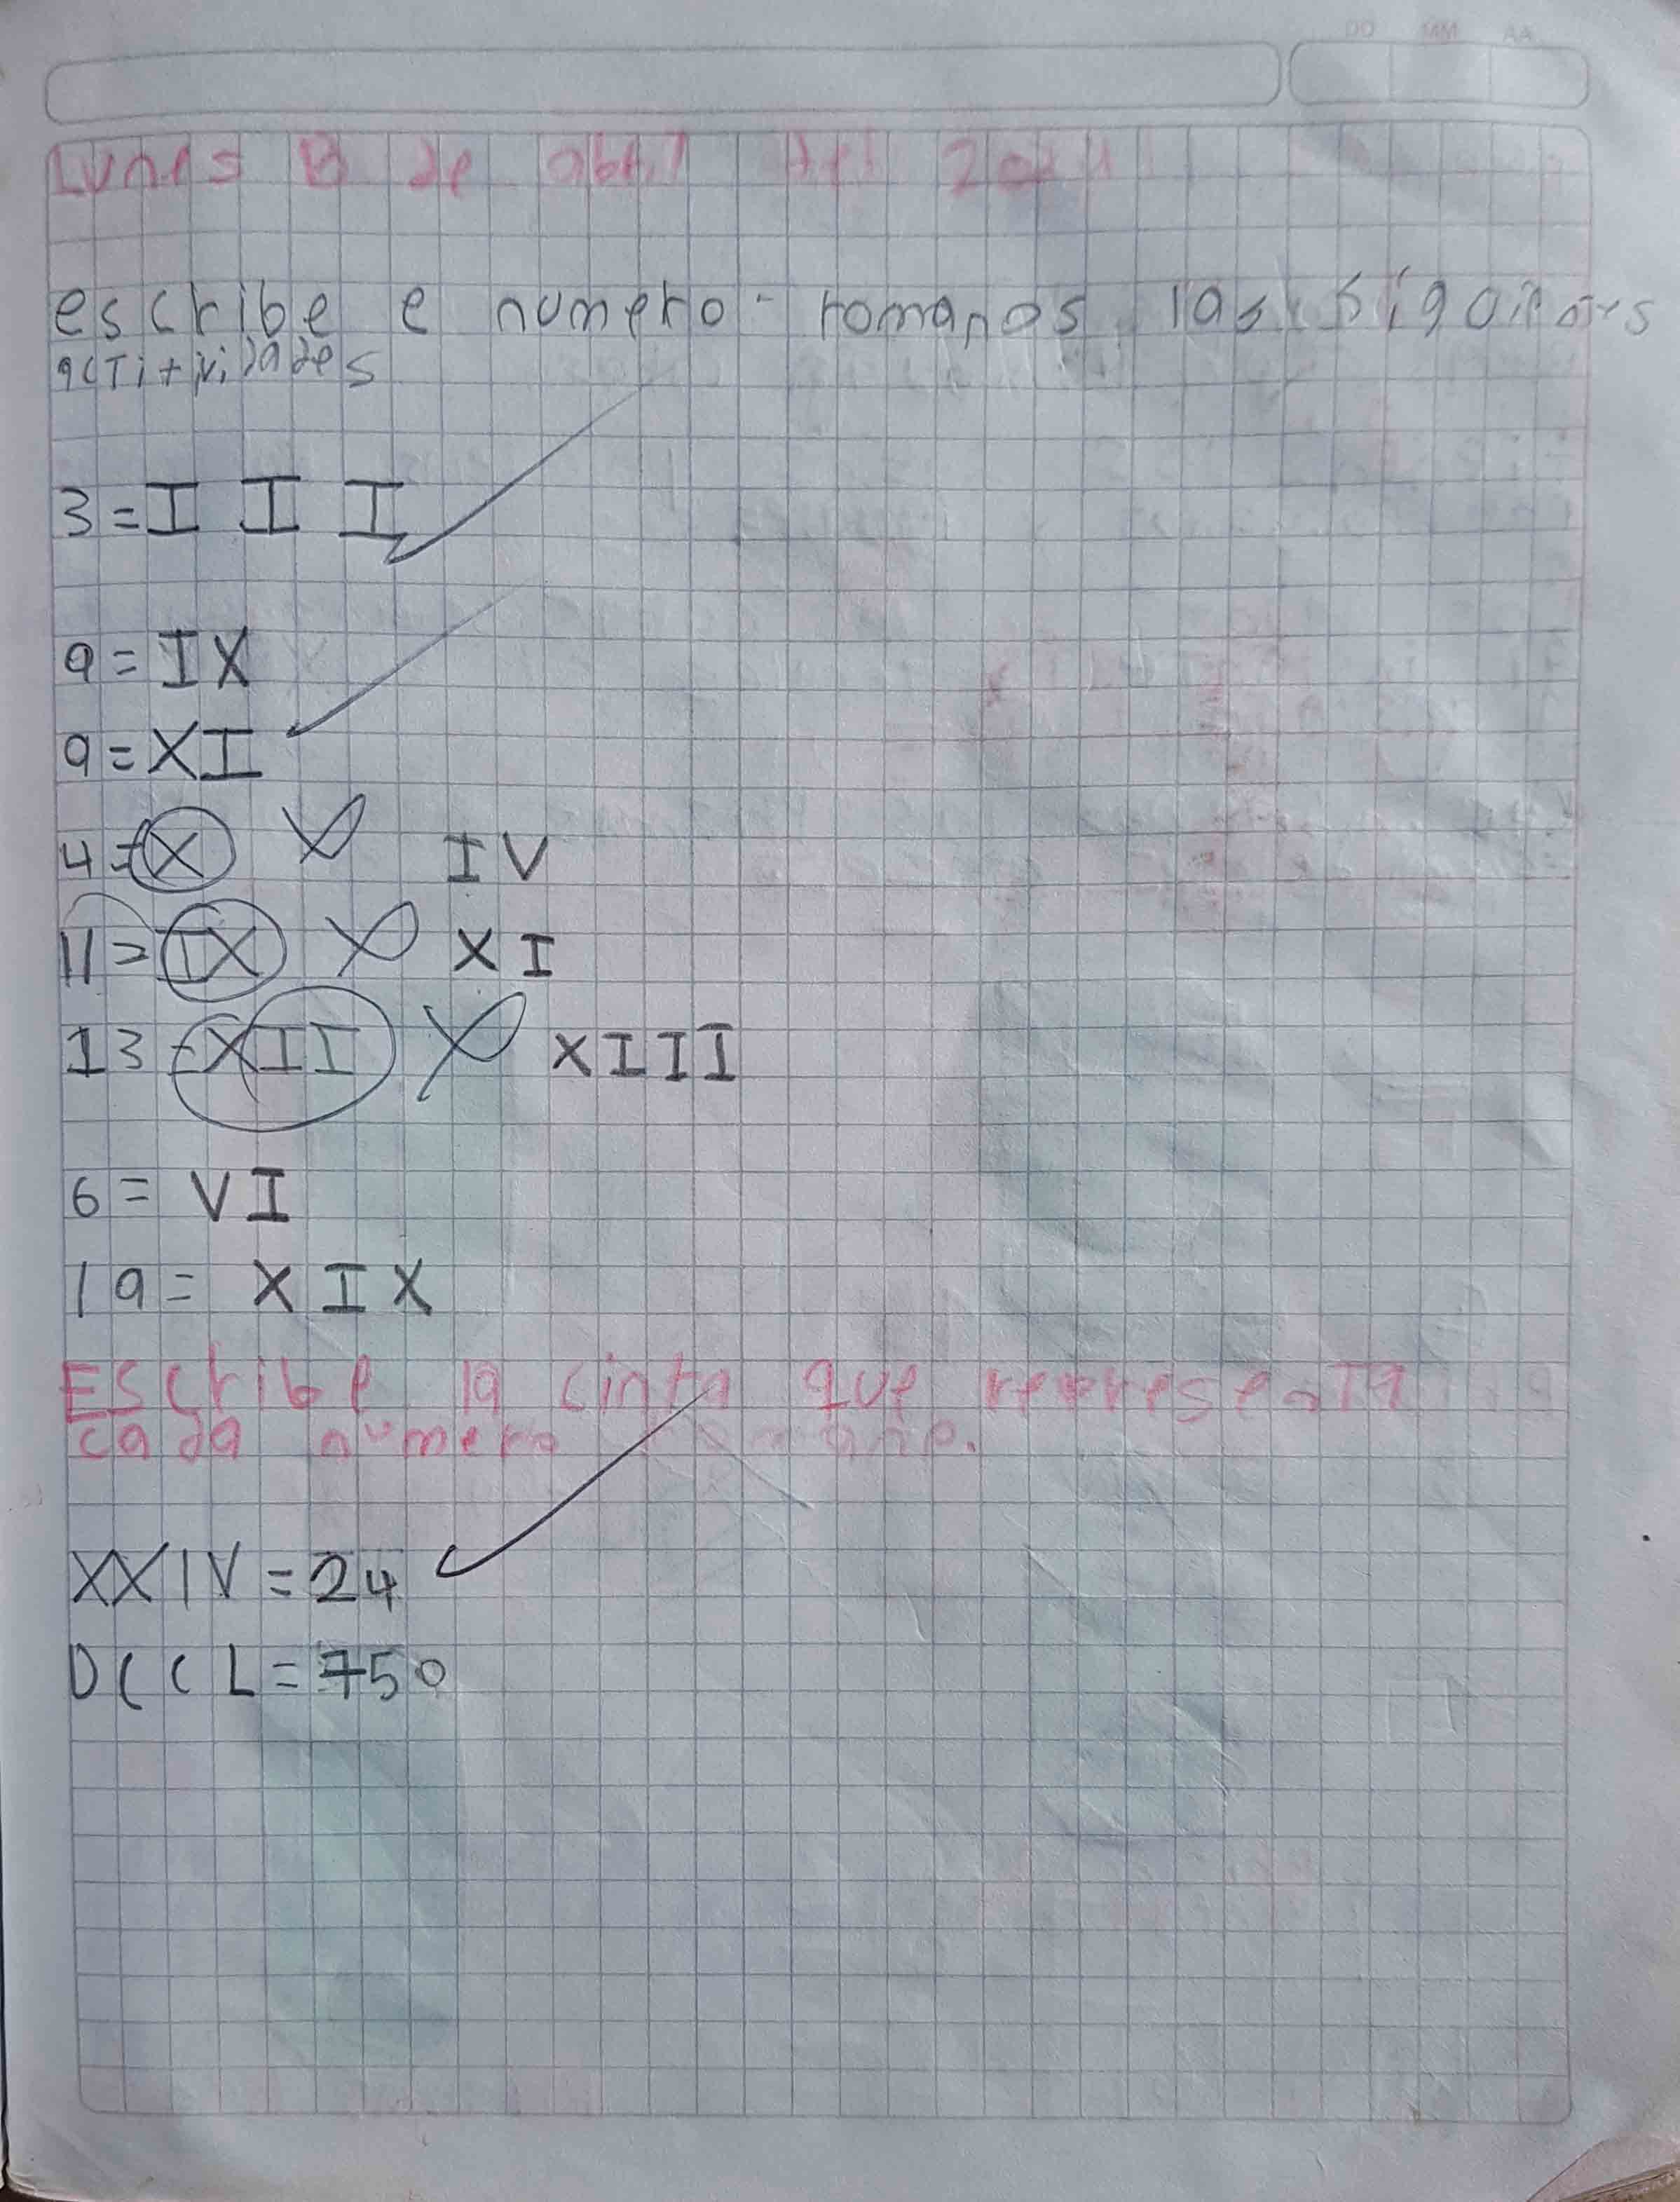 DD MM AA
Lunes 13 de abril del
escribe e numero romanos las
actitvidades
3 = I I I
9 = IX
9 = XI
4 = X IV
11 = IX XI
13 = XII XIII
6 = VI
19 = XIX
Escribe la cinta que representa
cada numero romano.
XXIV = 24
DCCL = 750